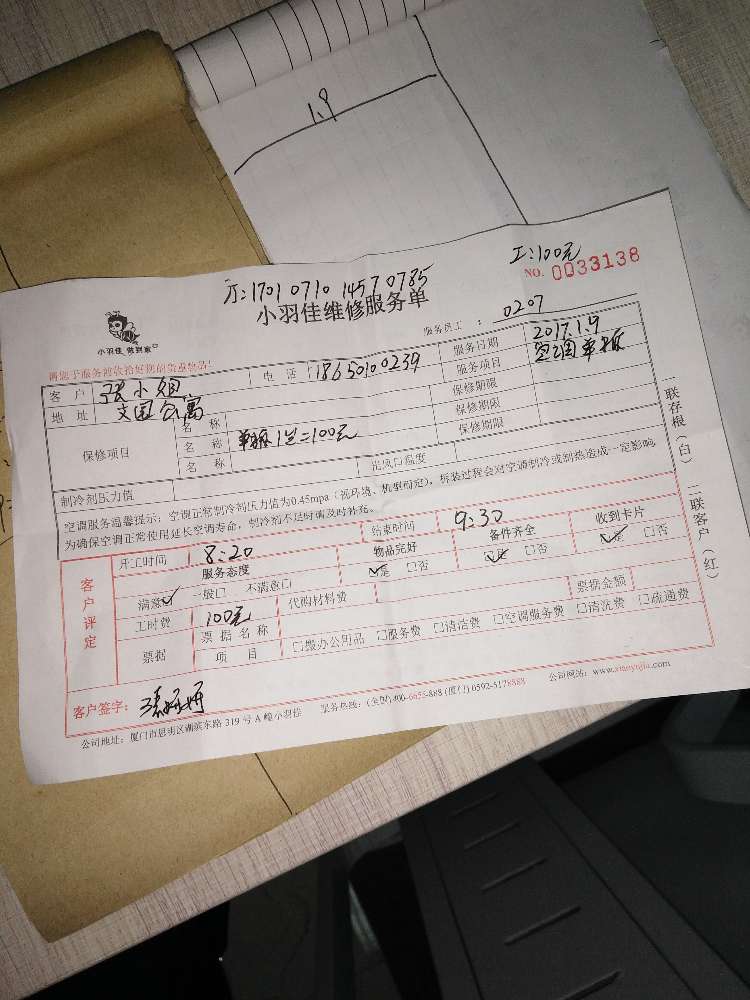 1.9
工:100元
NO. 0033138
17010710 14570785
小羽佳维修服务单
小羽佳 做到家
服务员工 : 0207
请您于服务前收拾好您的贵重物品!
客户 张小姐 电话 18650100239 服务日期 2017.1.9
地址 文园公寓 服务项目 空调
保修项目 名称 保修期限
名称 1台=100元 保修期限
名称 保修期限
制冷剂压力值 出风口温度
空调服务温馨提示:空调正常制冷剂压力值为0.45mpa(视环境、机型而定),拆装过程会对空调制冷或制热造成一定影响
为确保空调正常使用延长空调寿命,制冷剂不足时请及时补充。
客户评定
开工时间 8:20 结束时间 9:30
服务态度 物品完好 备件齐全 收到卡片
满意☑ 一般□ 不满意□ ☑是 □否 ☑是 □否 ☑是 □否
工时费 100元 代购材料费 票据金额
票据 票据名称
项目 □搬办公用品 □服务费 □清洁费 □空调服务费 □清洗费 □疏通费
客户签字:
公司地址:厦门市思明区湖滨东路 319 号 A 幢小羽佳 服务热线:(全国)400-6655-888 (厦门) 0592-5178888 公司网站:www.xiaoyujia.com
一联存根(白) 二联客户(红)